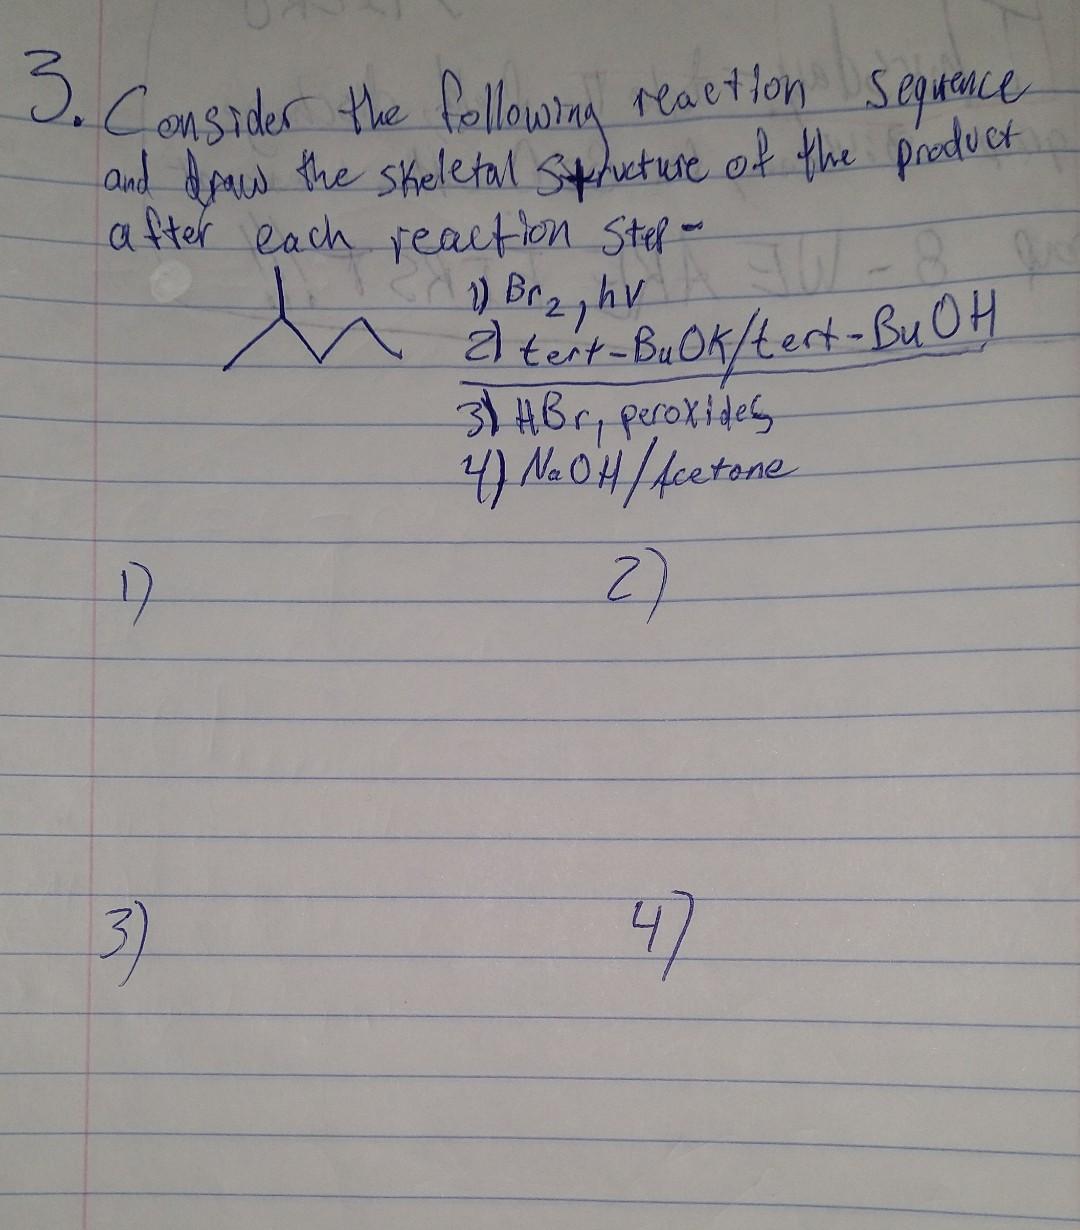 3. Consider the following reaction sequence
and draw the skeletal structure of the product
after each reaction step-
1) Br2, hv
2) tert-BuOK/tert-BuOH
3) HBr, peroxides
4) NaOH/Acetone
1) 2)
3) 4)